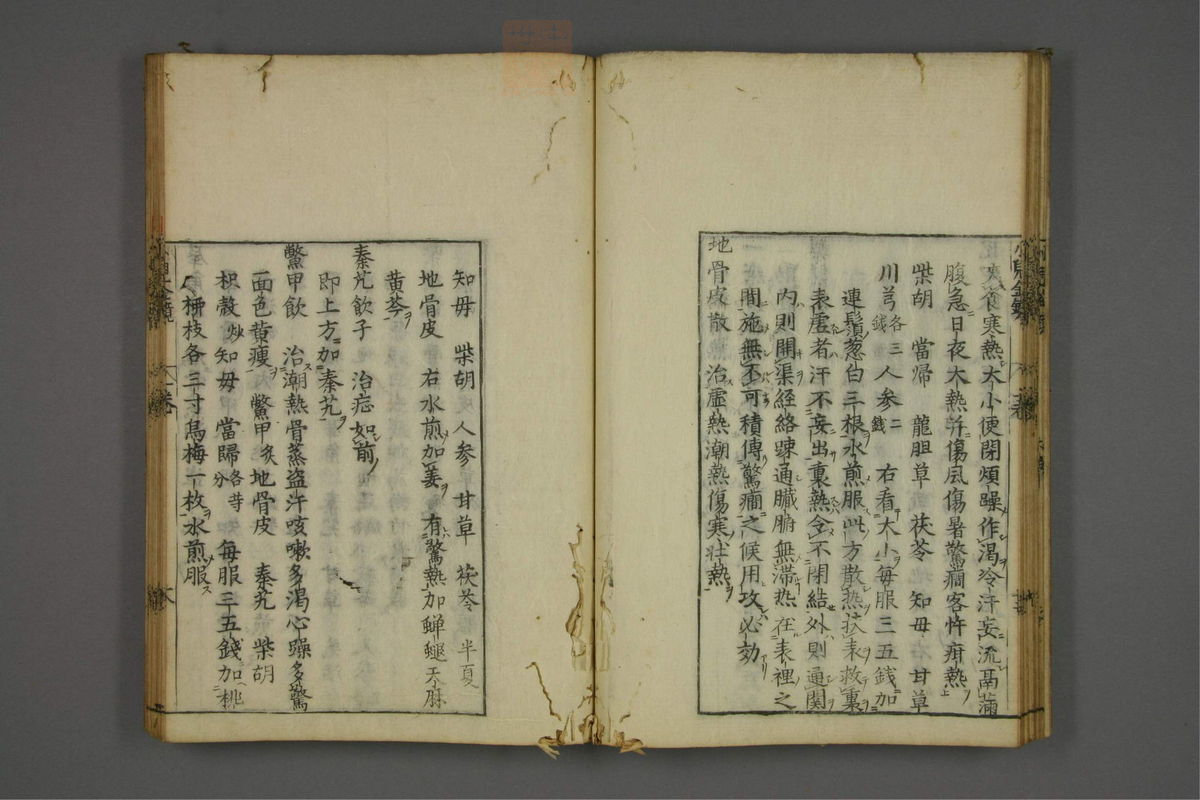 寒食寒熱大小便閉煩躁作渇冷汗妄流鬲滿
腹急日夜大熱并傷風傷暑驚癇客忤疳熱
柴胡 當帰 龍胆草 茯苓 知母 甘草
川芎各三錢 人参二錢 右看大小毎服三五錢加
連鬚葱白三根水煎服此方散熱扶表救裏
表虚者汗不妄出裏熱令不閉結外則通関
内則開渠経絡踈通臓腑無滞热在表裡之
間施無不可積傳驚癇之候用攻必効
地骨皮散 治虚熱潮熱傷寒壮熱
知母 柴胡 人参 甘草 茯苓 半夏
地骨皮 右水煎加姜有驚熱加蝉蛻天麻
黄芩
秦艽飲子 治症如前
即上方加秦艽
鱉甲飲 治潮熱骨蒸盗汗咳嗽多渇心躁多驚
面色黄痩 鱉甲炙 地骨皮 秦艽 柴胡
枳殻炒 知母 當歸各等分 毎服三五錢加桃
柳枝各三寸烏梅一枚水煎服